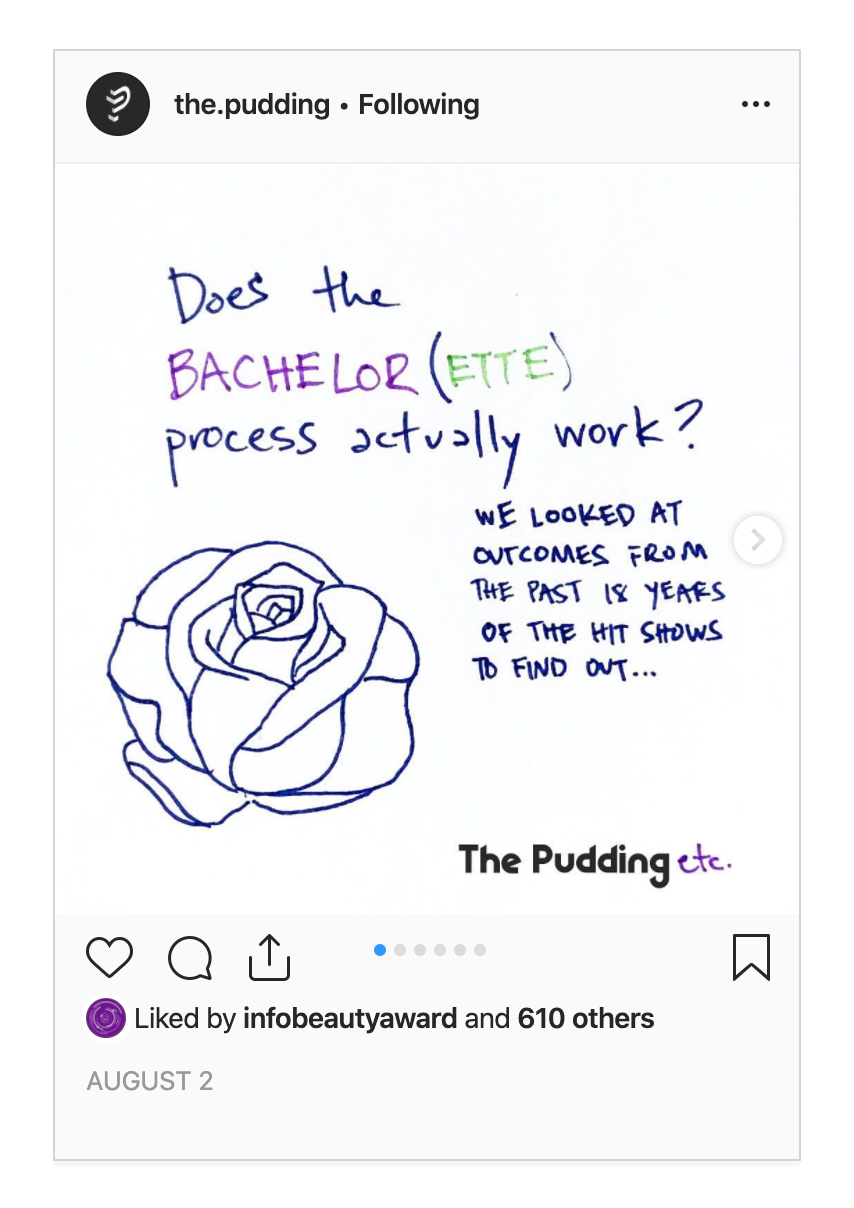 the.pudding • Following
Does the
BACHELOR (ETTE)
process actually work?
WE LOOKED AT
OUTCOMES FROM
THE PAST 18 YEARS
OF THE HIT SHOWS
TO FIND OUT...
The Pudding etc.
Liked by infobeautyaward and 610 others
AUGUST 2